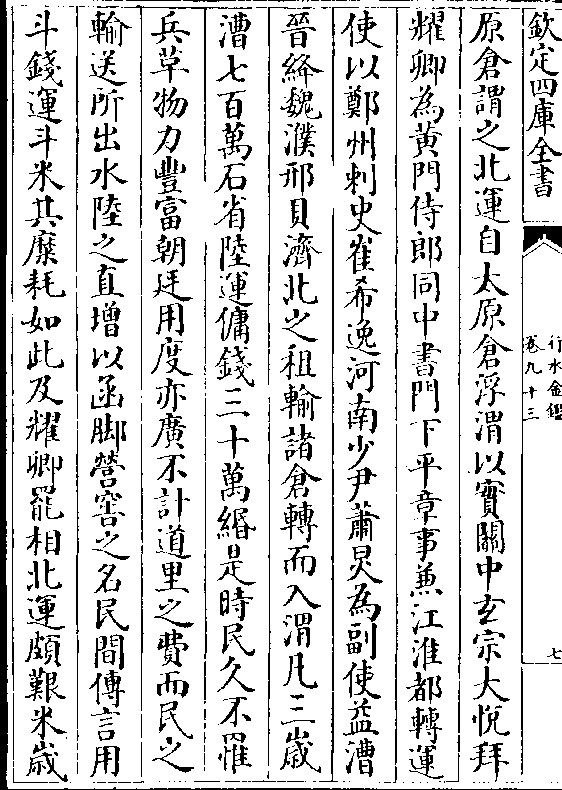 欽定四庫全書
行水金鑑
卷九十三
七
原倉謂之北運自太原倉浮渭以實關中玄宗大悅拜
耀卿為黄門侍郎同中書門下平章事兼江淮都轉運
使以鄭州刺史崔希逸河南少尹蕭炅為副使益漕
晉絳魏濮邢貝濟北之租輸諸倉轉而入渭凡三歲
漕七百萬石省陸運傭錢三十萬緡是時民久不罹
兵革物力豐富朝廷用度亦廣不計道里之費而民之
輸送所出水陸之直增以函脚營窖之名民間傳言用
斗錢運斗米其糜耗如此及耀卿罷相北運頗艱米歲